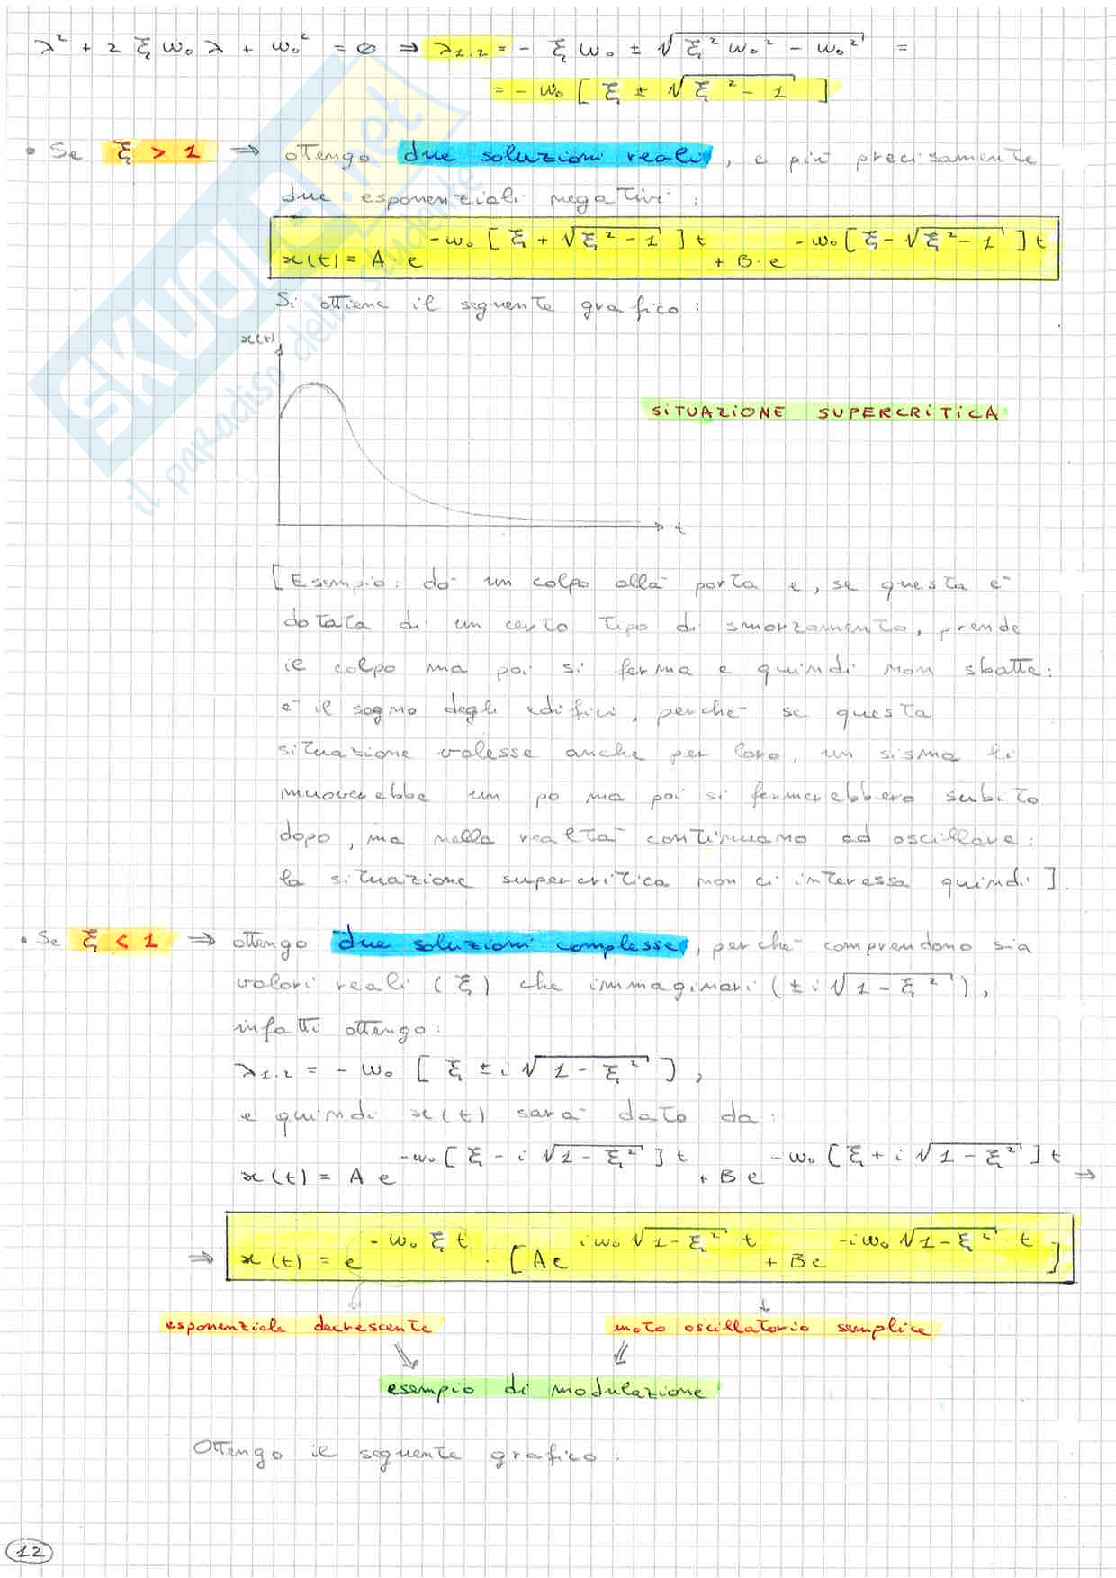 λ² + 2 ξ ω₀ λ + ω₀² = 0 ⇒ λ₁,₂ = - ξ ω₀ ± √(ξ² ω₀² - ω₀²) =
= - ω₀ [ ξ ± √(ξ² - 1) ]
• Se ξ > 1 ⇒ ottengo due soluzioni reali, e più precisamente
due esponenziali negativi:
x(t) = A · e^(-ω₀ [ ξ + √(ξ² - 1) ] t) + B · e^(-ω₀ [ ξ - √(ξ² - 1) ] t)
Si ottiene il seguente grafico:
x(t)
SITUAZIONE SUPERCRITICA
t
[Esempio: do un colpo alla porta e, se questa è
dotata di un certo tipo di smorzamento, prende
il colpo ma poi si ferma e quindi non sbatte:
è il sogno degli edifici, perché se questa
situazione valesse anche per loro, un sisma li
muoverebbe un po ma poi si fermerebbero subito
dopo, ma nella realtà continuano ad oscillare:
la situazione supercritica non ci interessa quindi].
• Se ξ < 1 ⇒ ottengo due soluzioni complesse, perché comprendono sia
valori reali (ξ) che immaginari (± i √(1 - ξ²)),
infatti ottengo:
λ₁,₂ = - ω₀ [ ξ ± i √(1 - ξ²) ],
e quindi x(t) sarà dato da:
x(t) = A e^(-ω₀ [ ξ - i √(1 - ξ²) ] t) + B e^(-ω₀ [ ξ + i √(1 - ξ²) ] t) ⇒
⇒ x(t) = e^(-ω₀ ξ t) · [ A e^(i ω₀ √(1 - ξ²) t) + B e^(-i ω₀ √(1 - ξ²) t) ]
esponenziale decrescente moto oscillatorio semplice
esempio di modulazione
Ottengo il seguente grafico:
12
SKUOLA.net
il paradiso dello studente